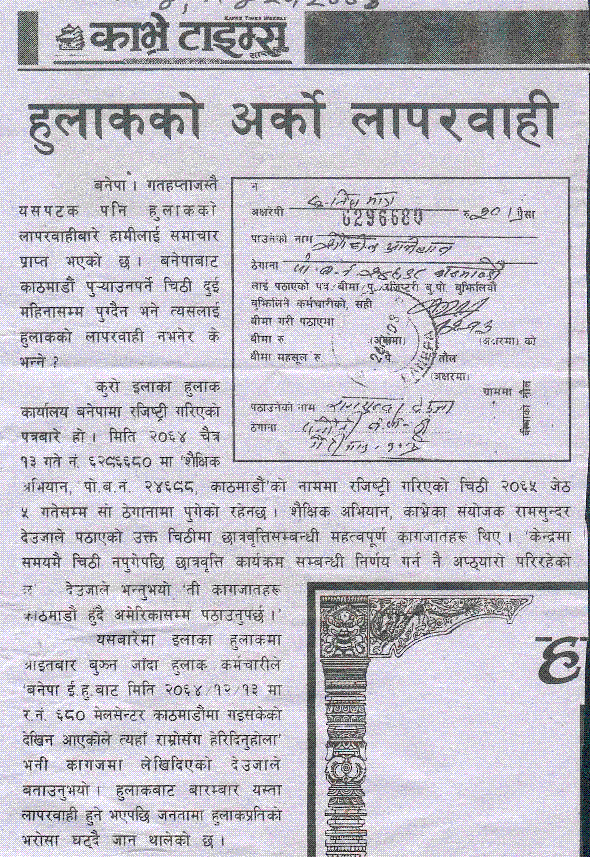 KAVRE TIMES WEEKLY
काभ्रे टाइम्स
हुलाकको अर्को लापरवाही
बनेपा । गतहप्ताजस्तै
यसपटक पनि हुलाकको
लापरवाहीबारे हामीलाई समाचार
प्राप्त भएको छ । बनेपाबाट
काठमाडौं पुऱ्याउनपर्ने चिठी दुई
महिनासम्म पुग्दैन भने त्यसलाई
हुलाकको लापरवाही नभनेर के
भन्ने ?
कुरो इलाका हुलाक
कार्यालय बनेपामा रजिष्ट्री गरिएको
पत्रबारे हो । मिति २०६४ चैत्र
१३ गते नं. ६२९६६८० मा 'शैक्षिक
अभियान, पो.ब.नं. २४६९९, काठमाडौं'को नाममा रजिष्ट्री गरिएको चिठी २०६५ जेठ
५ गतेसम्म सो ठेगानामा पुगेको रहेनछ । शैक्षिक अभियान, काभ्रेका संयोजक रामसुन्दर
देउजाले पठाएको उक्त चिठीमा छात्रवृत्तिसम्बन्धी महत्वपूर्ण कागजातहरू थिए । 'केन्द्रमा
समयमै चिठी नपुगेपछि छात्रवृत्ति कार्यक्रम सम्बन्धी निर्णय गर्न नै अप्ठ्यारो परिरहेको
देउजाले भन्नुभयो 'ती कागजातहरू
काठमाडौं हुँदै अमेरिकासम्म पठाउनुपर्छ ।'
यसबारेमा इलाका हुलाकमा
आइतबार बुझ्न जाँदा हुलाक कर्मचारीले
'बनेपा ई.हु.बाट मिति २०६४/१२/१३ मा
र.नं. ६८० मेलसेन्टर काठमाडौंमा गइसकेको
देखिन आएकोले त्यहाँ राम्रोसँग हेरिदिनुहोला'
भनी कागजमा लेखिदिएको देउजाले
बताउनुभयो । हुलाकबाट बारम्बार यस्ता
लापरवाही हुने भएपछि जनतामा हुलाकप्रतिको
भरोसा घट्दै जान थालेको छ ।
न
अक्षरेपी
6296680 रु २० । पैसा
पाउनेको नाम
ठेगाना पो.ब.नं काठमाडौं
लाई पठाएको पत्र/बीमा/पु. रजिष्टरी बु.पो. बुझिलियौं
बुझिलिने कर्मचारीको, सही
बीमा गरी पठाएमा
बीमा रु (अक्षरमा) (अक्षरमा) को
बीमा महसूल रु पै. तौल
(अक्षरमा)
ग्राममा
बीमाको तौल
पठाउनेको नाम रामसुन्दर देउजा
ठेगाना
BANEPA
ह